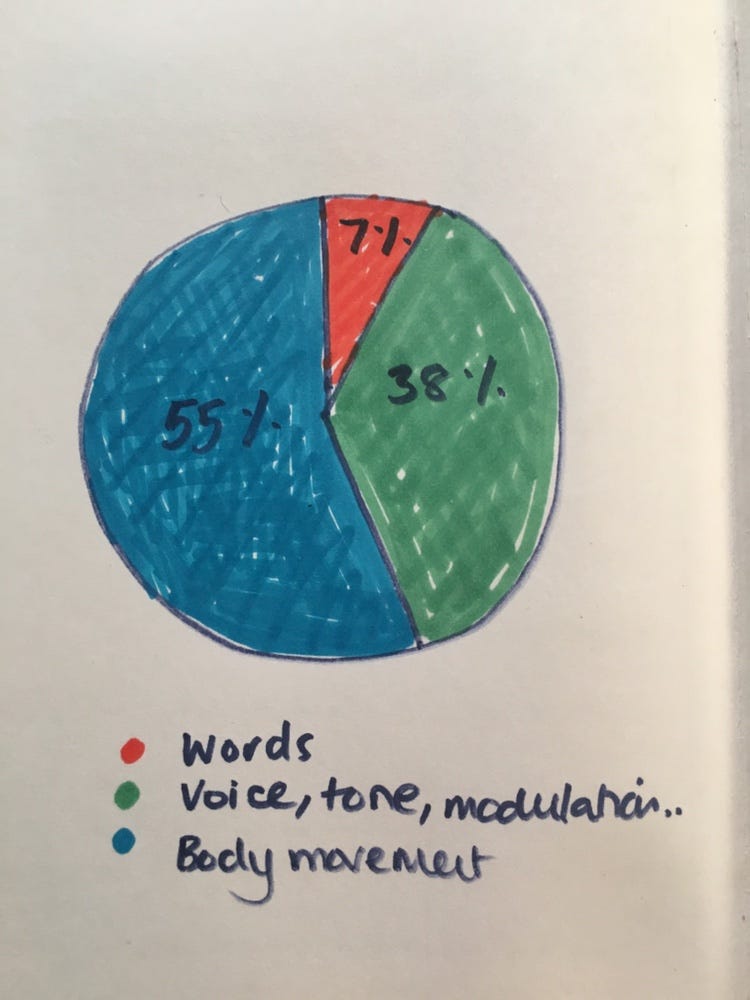 7%
38%
55%
Words
Voice, tone, modulation..
Body movement